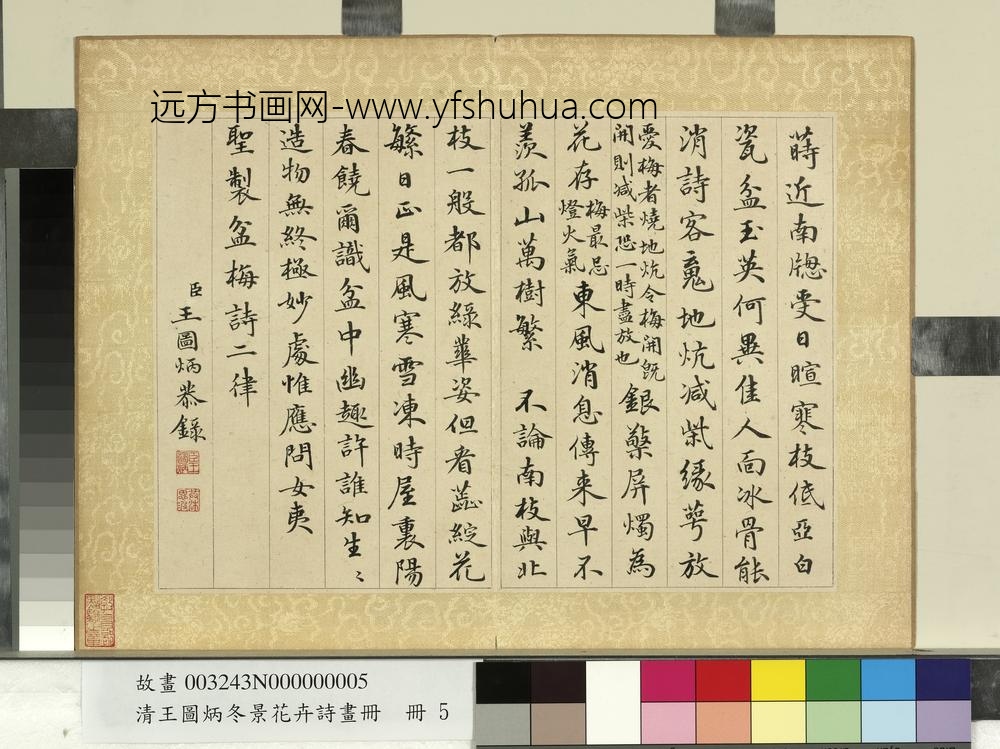 远方书画网-www.yfshuhua.com
蒔近南牎受日暄寒枝低亞白
瓷盆玉英何異佳人面冰骨能
消詩客魂地炕減柴緣萼放
愛梅者燒地炕令梅開既
開則减柴恐一時盡放也
銀檠屏燭為
花存
梅最忌
燈火氣
東風消息傳来早不
羨孤山萬樹繁 不論南枝與北
枝一般都放綠華姿但看蕊綻花
繁日正是風寒雪凍時屋裏陽
春饒爾識盆中幽趣許誰知生〻
造物無終極妙處惟應問女夷
聖製盆梅詩二律
臣王圖炳恭錄
故畫 003243N000000005
清王圖炳冬景花卉詩畫冊 冊 5